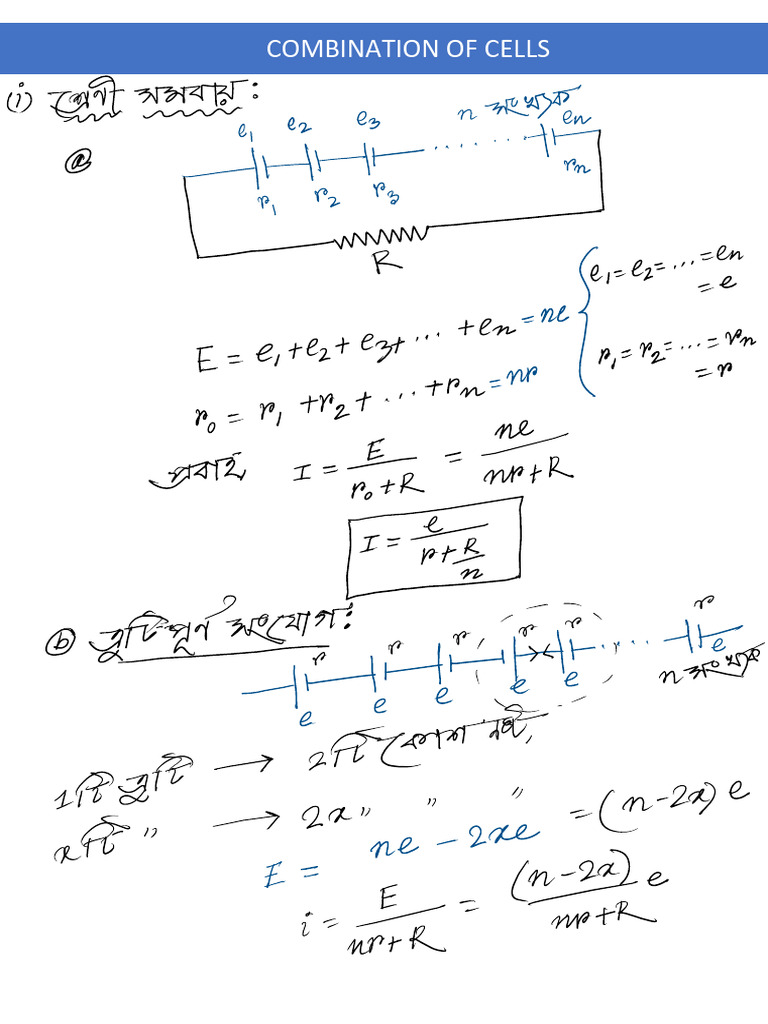 COMBINATION OF CELLS
(i) শ্রেণী সমবায়:
(a)
e₁ e₂ e₃ n সংখ্যক eₙ
r₁ r₂ r₃ rₙ
R
E = e₁ + e₂ + e₃ + ... + eₙ = ne
r₀ = r₁ + r₂ + ... + rₙ = nr
e₁ = e₂ = ... = eₙ
= e
r₁ = r₂ = ... = rₙ
= r
প্রবাহ I = E/(r₀ + R) = ne/(nr + R)
I = e/(r + R/n)
(b) ত্রুটিপূর্ণ সংযোগ:
r r r r r r
e e e e e e
n সংখ্যক
1টি ত্রুটি → 2টি কোশ নষ্ট,
xটি " → 2x " " "
E = ne − 2xe = (n − 2x) e
i = E/(nr + R) = (n − 2x) e/(nr + R)